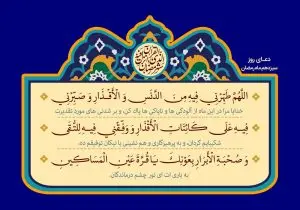 دعای روز
سیزدهم ماه رمضان
اللّهُمَّ طَهِّرْنی فیهِ مِنَ الدَّنَسِ وَ الْأَقْذارِ وَ صَبِّرْنی
خدایا مرا در این ماه از آلودگی ها و ناپاکی ها پاک کن، و بر شدنی های مورد تقدیرت
فیهِ عَلی کائِناتِ الْأَقْدارِ وَ وَفِّقْنی فیهِ لِلتُّقی
شکیبایم گردان، و به پرهیزگاری و هم نشینی با نیکان توفیقم ده،
وَ صُحْبَةِ الْأَبْرارِ بِعَوْنِکَ یا قُرَّةَ عَیْنِ الْمَساکینِ
به یاری ات ای نور چشم درماندگان.